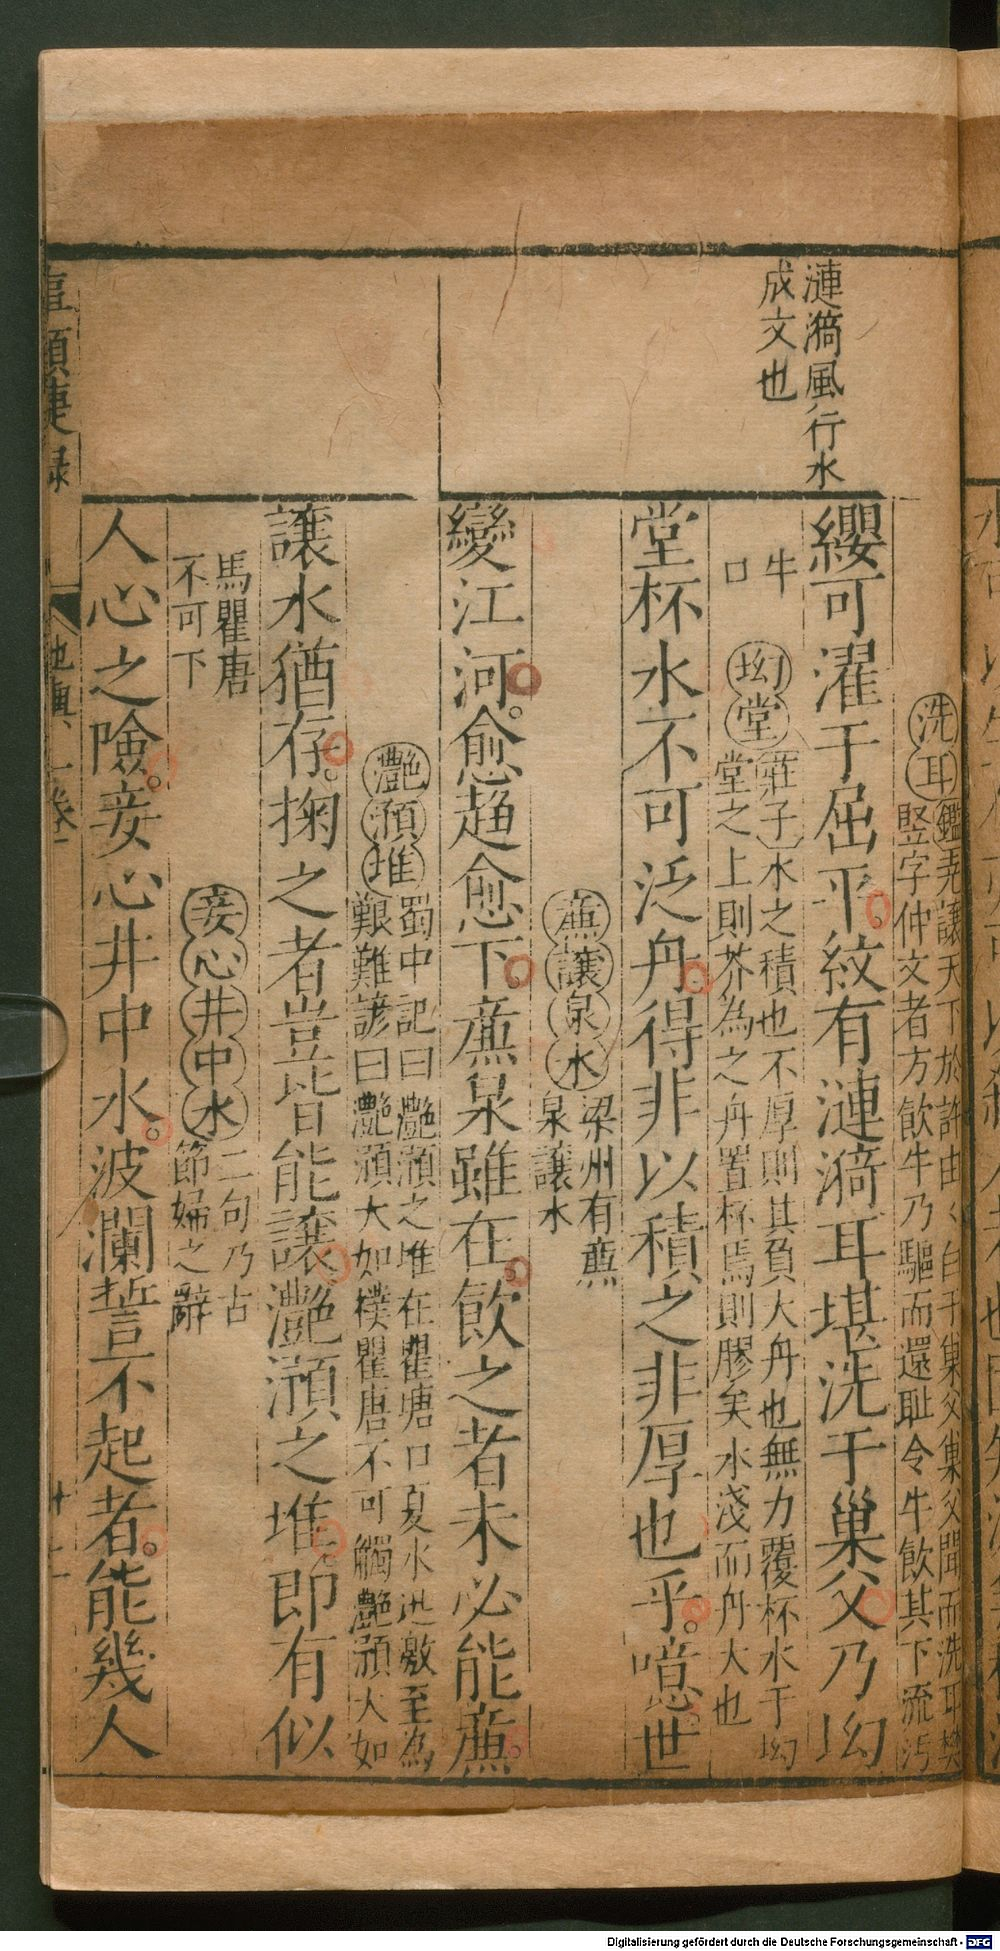 漣漪風行水
成文也
洗耳
鑑堯讓天下於許由〻白于巢父巢父聞而洗耳樊
豎字仲文者方飲牛乃驅而還耻令牛飲其下流汚
纓可濯于屈平紋有漣漪耳堪洗于巢父乃坳
牛
口
坳堂
莊子水之積也不厚則其負大舟也無力覆杯水于坳
堂之上則芥為之舟置杯焉則膠矣水淺而舟大也
堂杯水不可泛舟得非以積之非厚也乎噫世
亷讓泉水
梁州有亷
泉讓水
變江河愈趨愈下亷泉雖在飲之者未必能亷
灔澦堆
蜀中記曰灔澦之堆在瞿唐口夏水迅激至為
艱難諺曰灔澦大如樸瞿唐不可觸灔澦大如
讓水猶存掬之者豈皆能讓灔澦之堆即有似
馬瞿唐
不可下
妾心井中水
二句乃古
節婦之辭
人心之險妾心井中水波瀾誓不起者能幾人
頭捷錄
地輿
一卷
十二
Digitalisierung gefördert durch die Deutsche Forschungsgemeinschaft - DFG